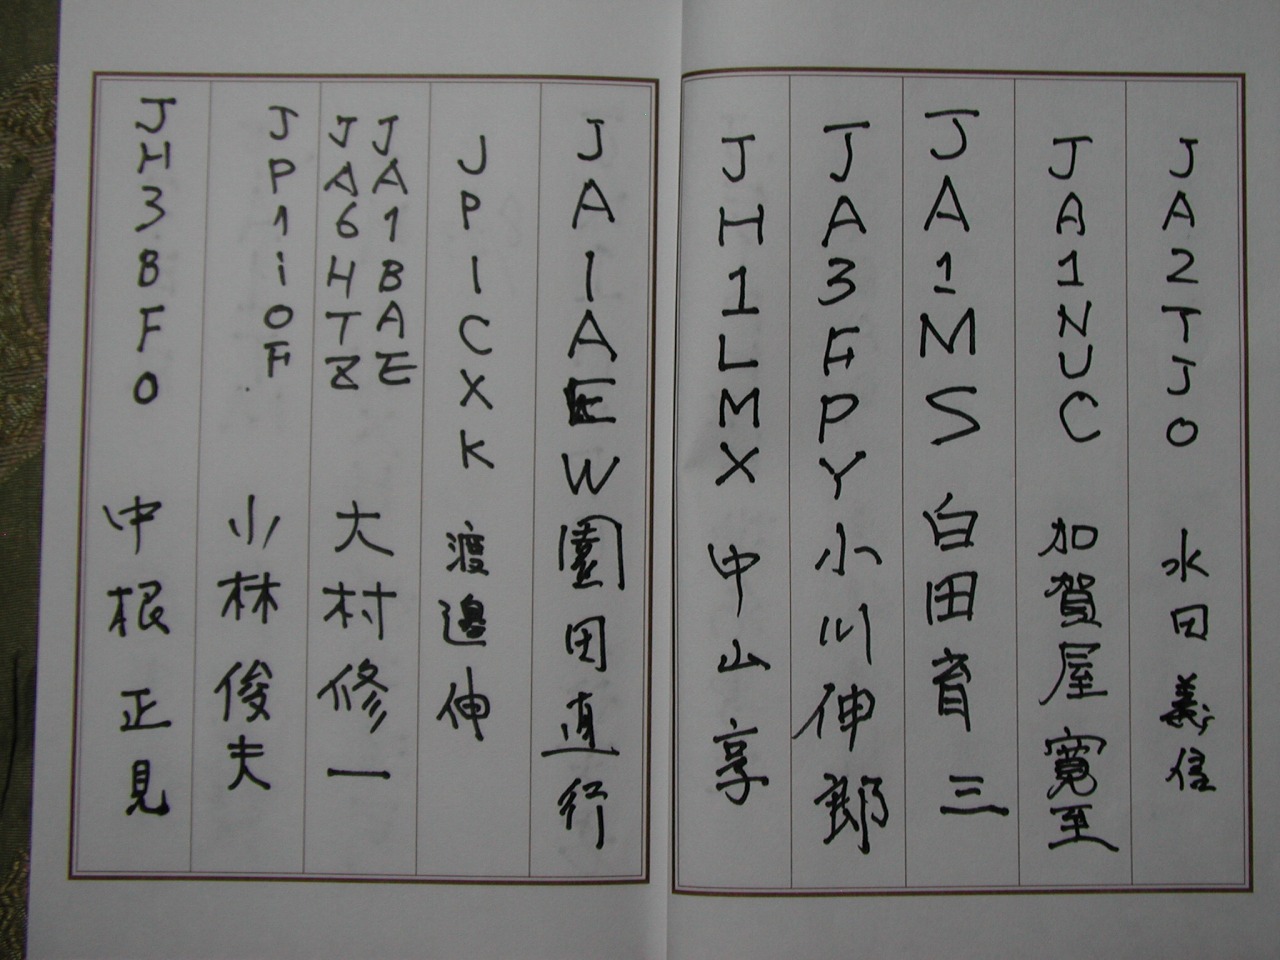 JA2TJO 水田義信
JA1NUC 加賀屋寛至
JA1MS 白田育三
JA3FPY 小川伸郎
JH1LMX 中山享
JA1AEW 園田直行
JP1CXK 渡邊伸
JA1BAE
JA6HTZ 大村修一
JP1iOF 小林俊夫
JH3BFO 中根正見